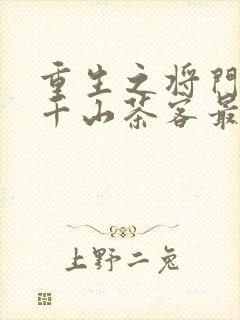 重生之将门
千山茶客最
上野二兔